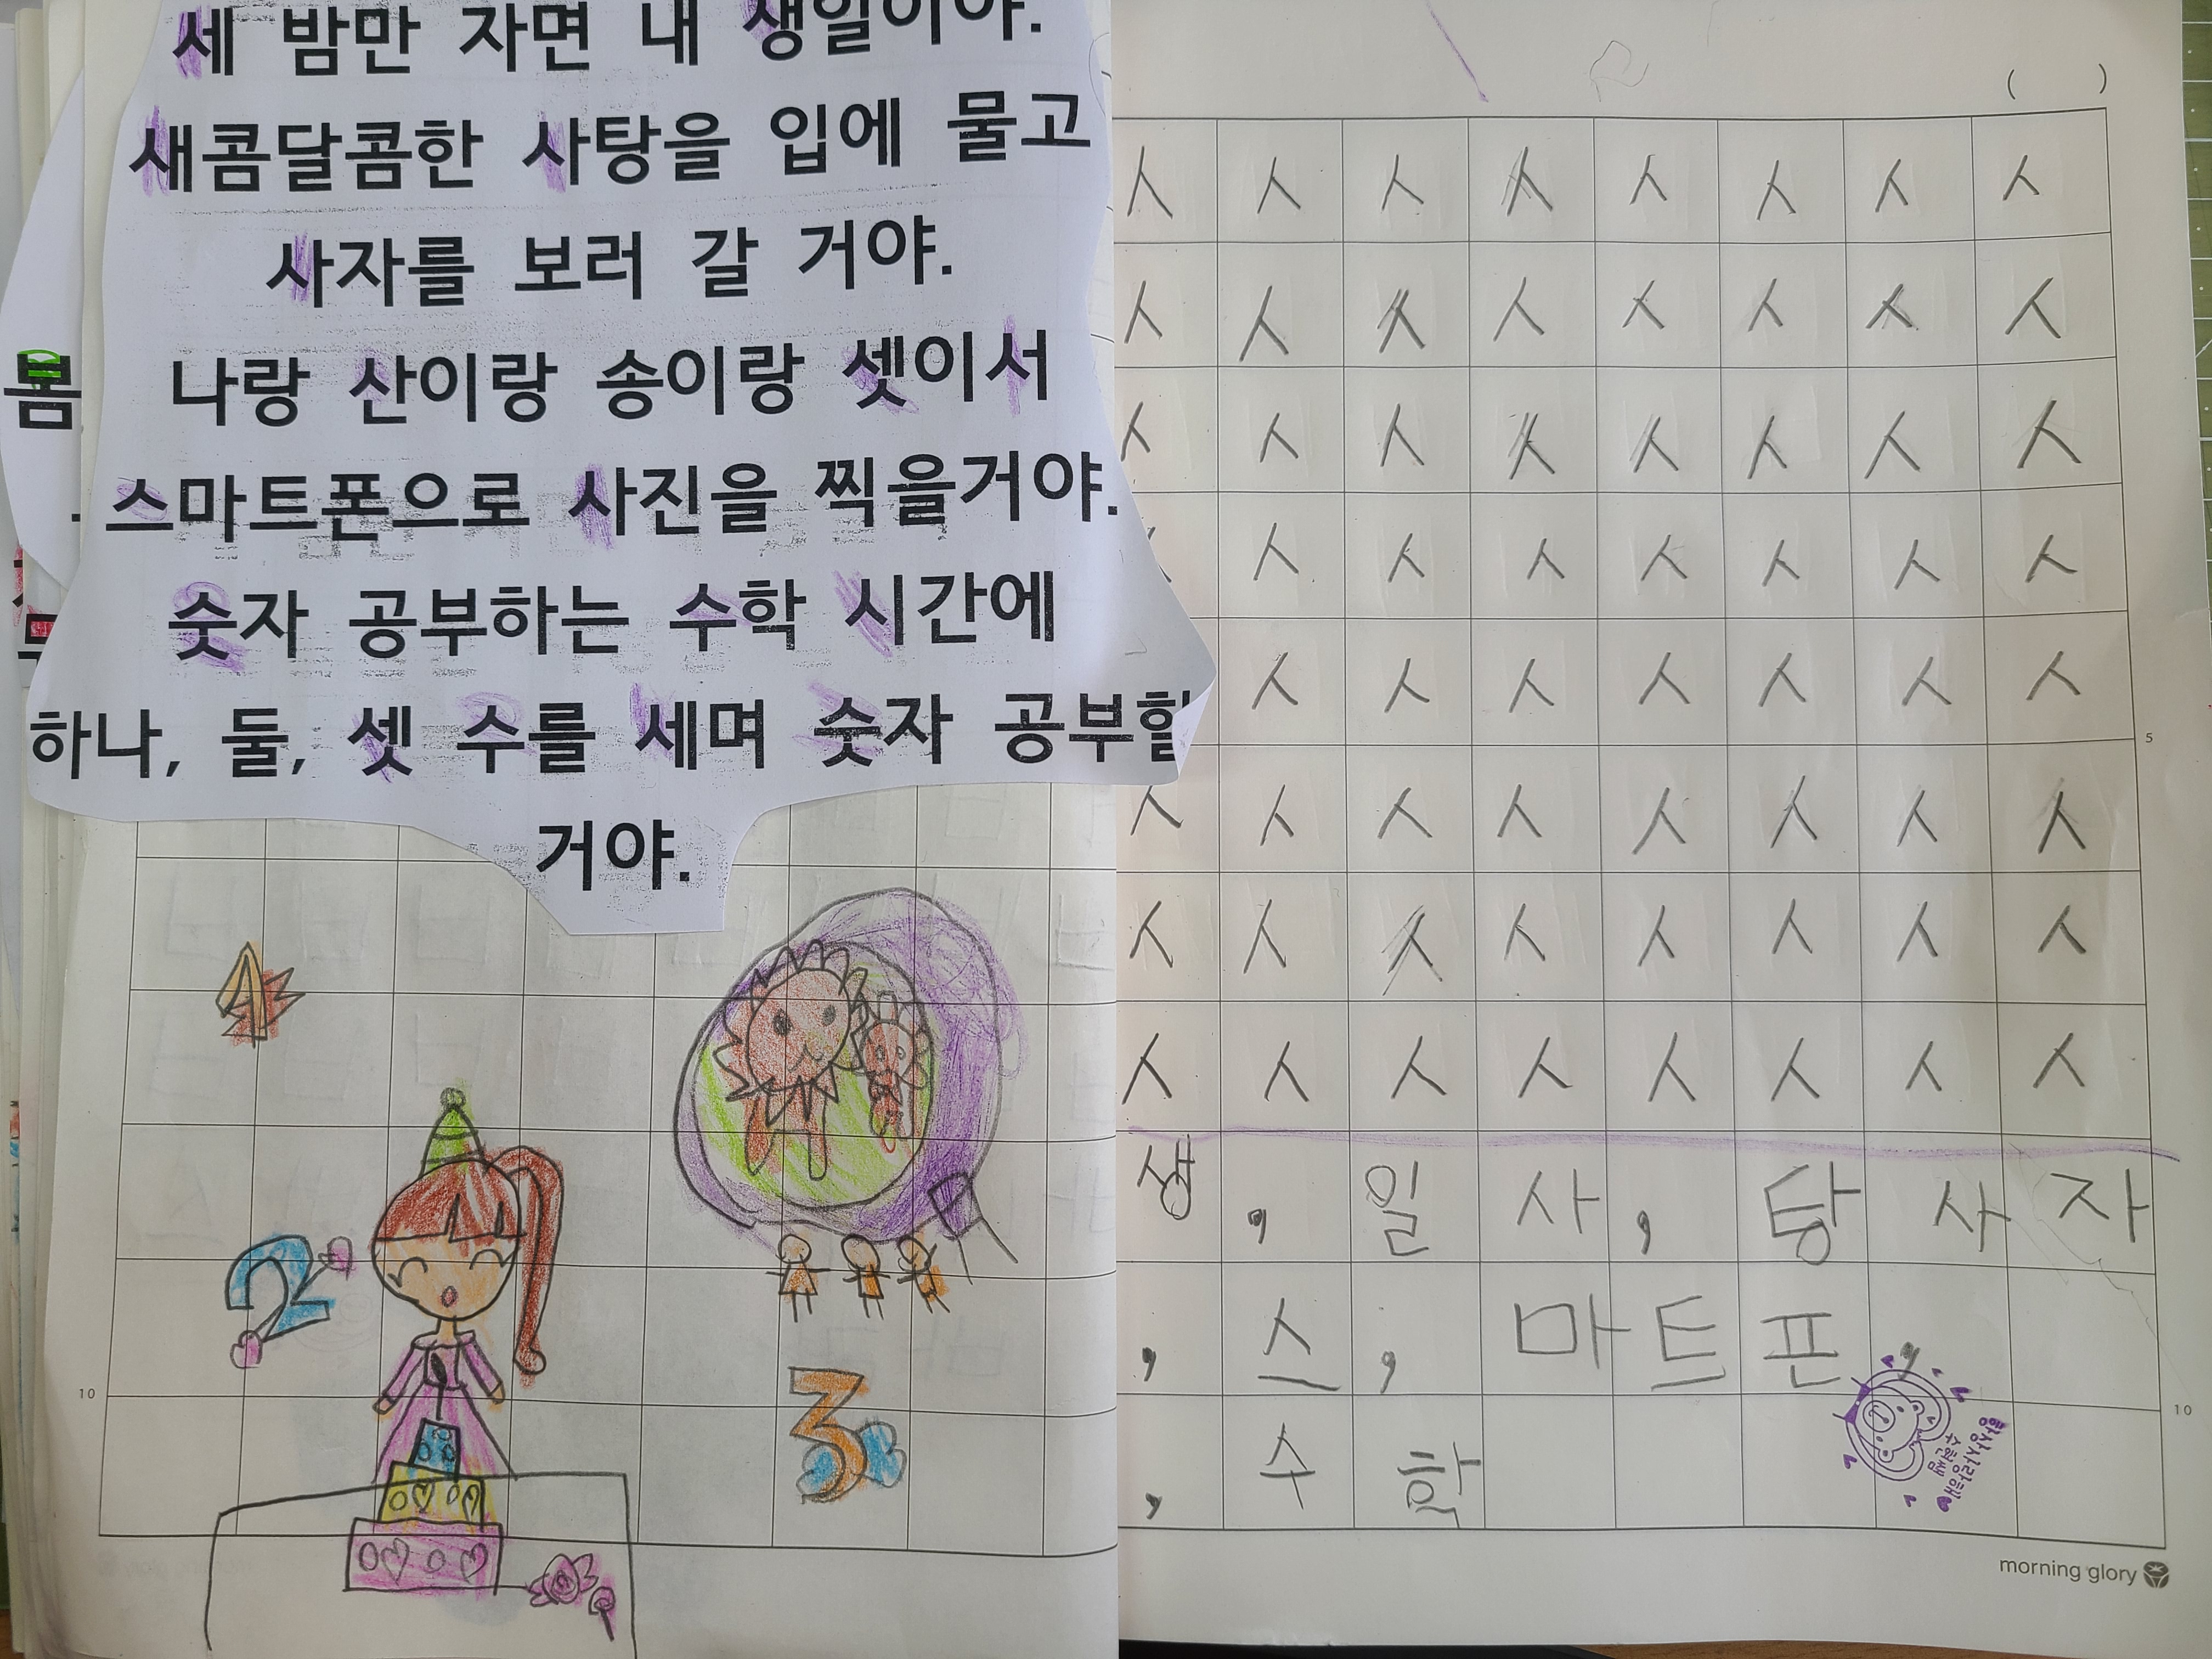 세 밤만 자면 내 생일이야.
새콤달콤한 사탕을 입에 물고
사자를 보러 갈 거야.
나랑 산이랑 송이랑 셋이서
스마트폰으로 사진을 찍을거야.
숫자 공부하는 수학 시간에
하나, 둘, 셋 수를 세며 숫자 공부할
거야.
봄
1
2
3
10
( )
ㅅ ㅅ ㅅ ㅅ ㅅ ㅅ ㅅ ㅅ
ㅅ ㅅ ㅅ ㅅ ㅅ ㅅ ㅅ ㅅ
ㅅ ㅅ ㅅ ㅅ ㅅ ㅅ ㅅ ㅅ
ㅅ ㅅ ㅅ ㅅ ㅅ ㅅ ㅅ ㅅ
ㅅ ㅅ ㅅ ㅅ ㅅ ㅅ ㅅ
5
ㅅ ㅅ ㅅ ㅅ ㅅ ㅅ ㅅ ㅅ
ㅅ ㅅ ㅅ ㅅ ㅅ ㅅ ㅅ ㅅ
ㅅ ㅅ ㅅ ㅅ ㅅ ㅅ ㅅ ㅅ
생 , 일 사 , 탕 사 자
, 스 , 마 트 폰 ,
10
, 수 학
morning glory